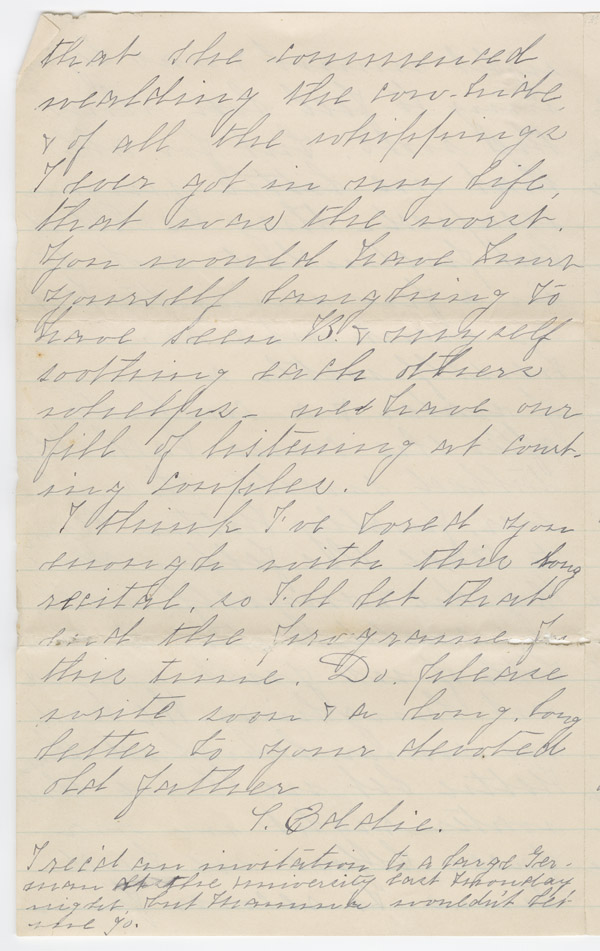 that she commenced
wealding the cow-hide,
& of all the whippings
I ever got in my life,
that was the worst.
You would have hurt
yourself laughing to
have seen B. & myself
soothing each others
whelps - we have our
fill of listening at court-
ing couples.
I think I've bored you
enough with this long
recital, so I'll let that
end the programe for
this time. Do, please
write soon & a long, long
letter to your devoted
old father
Eddie.
I rec'd an invitation to a large Ger-
man at the University last Monday
night, but Mamma wouldn't let
me go.